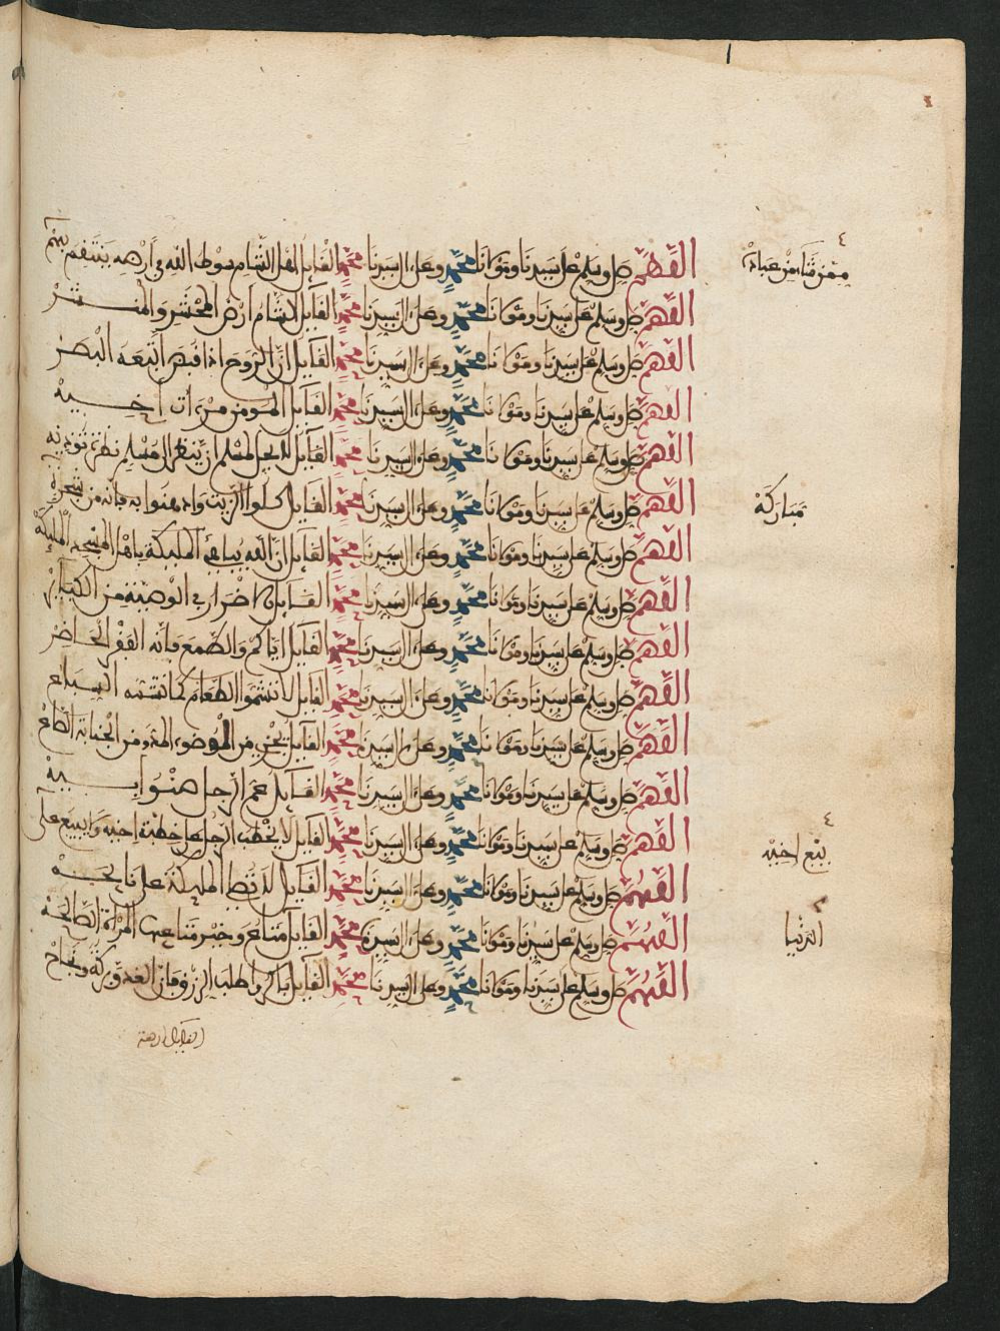 اللّهمّ صل وسلم على سيدنا ومولانا محمّد وعلى ال سيدنا محمّد القايل اهل الشام سوط الله في ارضه ينتقم بهم
ممن شاء من عباده
اللّهمّ صل وسلم على سيدنا ومولانا محمّد وعلى ال سيدنا محمّد القايل الشام ارض المحشر والمنشر
اللّهمّ صل وسلم على سيدنا ومولانا محمّد وعلى ال سيدنا محمّد القايل ان الروح اذا قبض اتبعه البصر
اللّهمّ صل وسلم على سيدنا ومولانا محمّد وعلى ال سيدنا محمّد القايل المومن مرءات اخيه
اللّهمّ صل وسلم على سيدنا ومولانا محمّد وعلى ال سيدنا محمّد القايل لا يحل لمسلم ان ينظر الى مسلم نظرة توذيه
اللّهمّ صل وسلم على سيدنا ومولانا محمّد وعلى ال سيدنا محمّد القايل كلوا الزيت وادهنوا به فانه من شجرة
مباركة
اللّهمّ صل وسلم على سيدنا ومولانا محمّد وعلى ال سيدنا محمّد القايل ان الله يباهي الملايكة
اللّهمّ صل وسلم على سيدنا ومولانا محمّد وعلى ال سيدنا محمّد القايل الاضرار في الوصية من الكباير
اللّهمّ صل وسلم على سيدنا ومولانا محمّد وعلى ال سيدنا محمّد القايل اياكم والطمع فانه الفقر الحاضر
اللّهمّ صل وسلم على سيدنا ومولانا محمّد وعلى ال سيدنا محمّد القايل لا تشموا الطعام كما تشمه السباع
اللّهمّ صل وسلم على سيدنا ومولانا محمّد وعلى ال سيدنا محمّد القايل يجزي من الوضوء المد ومن الجنابة الصاع
اللّهمّ صل وسلم على سيدنا ومولانا محمّد وعلى ال سيدنا محمّد القايل عم الرجل صنو ابيه
اللّهمّ صل وسلم على سيدنا ومولانا محمّد وعلى ال سيدنا محمّد القايل لا يخطب الرجل على خطبة اخيه ولا يبيع على
بيع اخيه
اللّهمّ صل وسلم على سيدنا ومولانا محمّد وعلى ال سيدنا محمّد القايل الملايكة على
اللّهمّ صل وسلم على سيدنا ومولانا محمّد وعلى ال سيدنا محمّد القايل متاع وخير متاعها المراة الصالحة
الدنيا
اللّهمّ صل وسلم على سيدنا ومولانا محمّد وعلى ال سيدنا محمّد القايل باكروا طلب الرزق فان الغدو بركة ونجاح
القايل